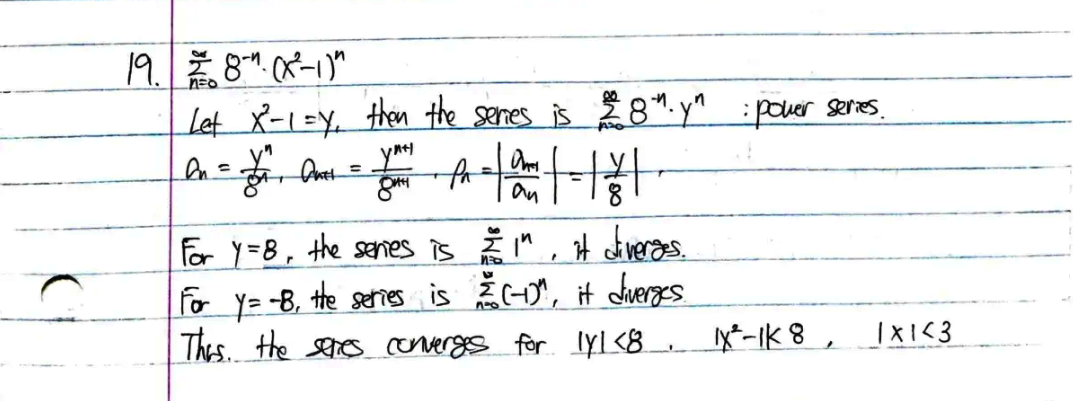 19. ∞Σn=0 8⁻ⁿ·(x²-1)ⁿ
Let x²-1=y, then the series is ∞Σn=0 8⁻ⁿ·yⁿ : power series.
aₙ = yⁿ/8ⁿ, aₙ₊₁ = yⁿ⁺¹/8ⁿ⁺¹. ρₙ = |aₙ₊₁/aₙ| = |y/8|.
For y=8, the series is ∞Σn=0 1ⁿ, it diverges.
For y=-8, the series is ∞Σn=0 (-1)ⁿ, it diverges
Thus. the series converges for |y|<8. |x²-1|<8, |x|<3